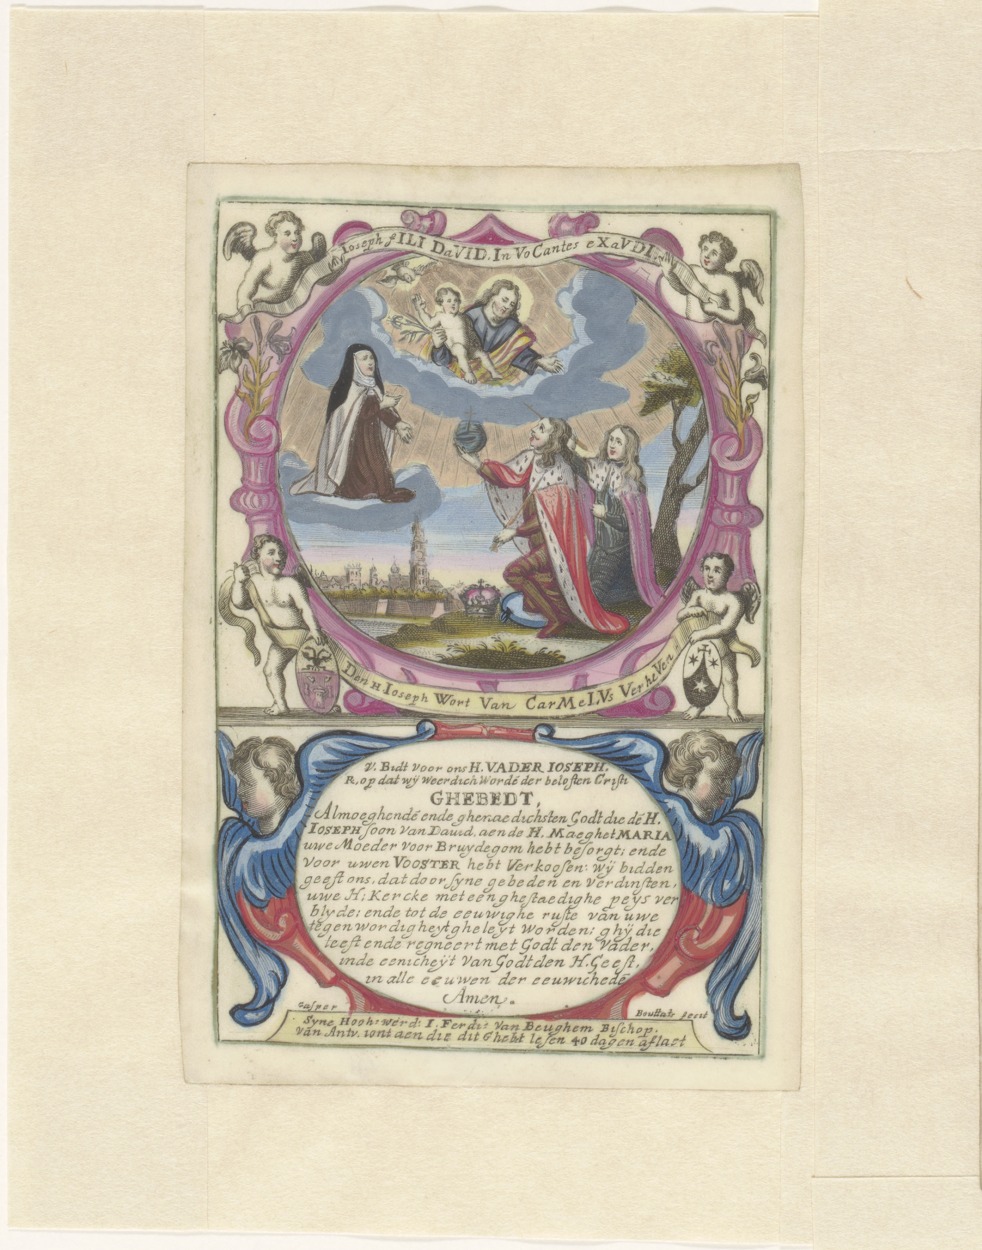 Joseph fILI DaVID. In VoCantes eXaVDI
Den H Ioseph Wort Van CarMeLVs VerheVen
V. Bidt voor ons H. VADER IOSEPH.
R, op dat wÿ weerdich Wordē der beloften Cristi
GHEBEDT,
Almoeghendē ende ghenaedichsten Godt die dē H.
IOSEPH soon van Dauid, aen de H. Maeghet MARIA
uwe Moeder voor Bruydegom hebt besorgt; ende
voor uwen VOOSTER hebt Verkoosen: wÿ bidden
geeft ons, dat door syne gebeden en verdinsten,
uwe H; Kercke met een ghestaedighe peÿs ver
blyde; ende tot de eeuwighe ruste van uwe
tegenwordigheyt gheleyt Worden; ghÿ die
leeft ende regneert met Godt den Vader,
inde eenicheÿt Van Godt den H. Geest,
in alle eeuwen der eeuwichedē
Amen.
Gasper Bouttats fecit
Syne Hooh: werd: I. Ferdi: Van Beughem Bischop.
van Antw. iont aen die dit Ghebt lesen 40 dagen aflaet